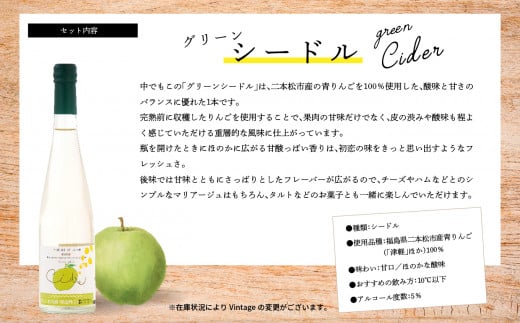 セット内容
グリーン
シードル
green
Cider
中でもこの「グリーンシードル」は、二本松市産の青りんごを100%使用した、酸味と甘さの
バランスに優れた1本です。
完熟前に収穫したりんごを使用することで、果肉の甘味だけでなく、皮の渋みや酸味も程よ
く感じていただける重層的な風味に仕上がっています。
瓶を開けたときにほのかに広がる甘酸っぱい香りは、初恋の味をきっと思い出すようなフ
レッシュさ。
後味では甘味とともにさっぱりとしたフレーバーが広がるので、チーズやハムなどとのシ
ンプルなマリアージュはもちろん、タルトなどのお菓子とも一緒に楽しんでいただけます。
●種類：シードル
●使用品種：福島県二本松市産青りんご
（「津軽」ほか）100%
●味わい：甘口／ほのかな酸味
●おすすめの飲み方：10℃以下
●アルコール度数：5%
※在庫状況によりVintageの変更がございます。